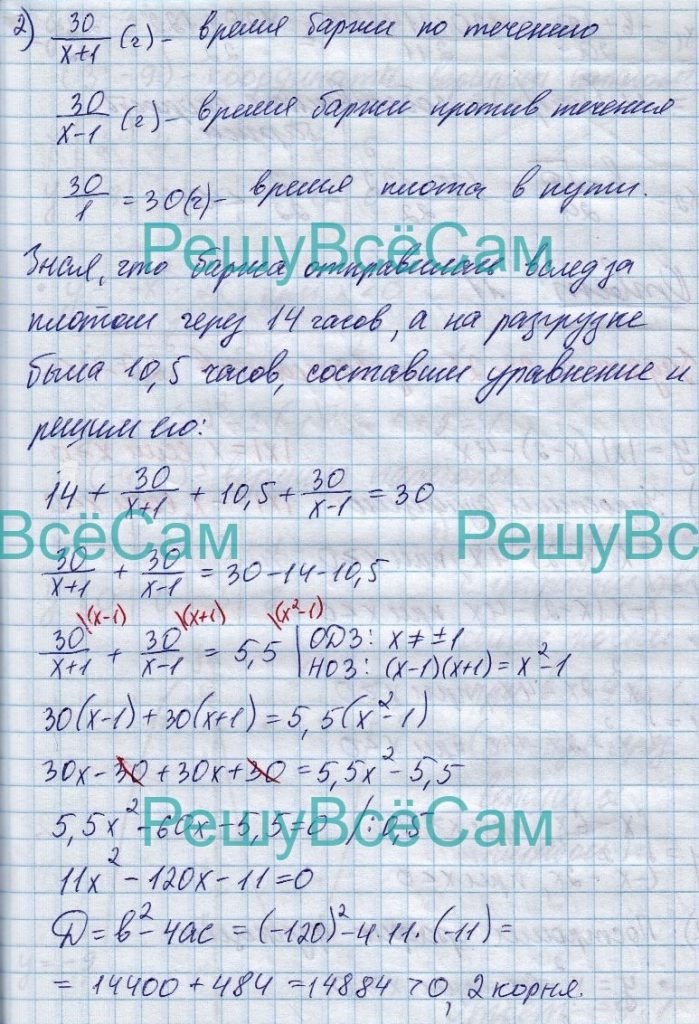 2) 30/(x+1) (ч) - время баржи по течению
30/(x-1) (ч) - время баржи против течения
30/1 = 30(ч) - время плота в пути.
РешуВсёСам
Зная, что баржа отправилась вслед за
плотом через 14 часов, а на разгрузке
была 10,5 часов, составим уравнение и
решим его:
14 + 30/(x+1) + 10,5 + 30/(x-1) = 30
ВсёСам РешуВс
30/(x+1) + 30/(x-1) = 30-14-10,5
30/(x+1) \(x-1) + 30/(x-1) \(x+1) = 5,5 \(x²-1) | ОДЗ: x ≠ ±1
НОЗ: (x-1)(x+1) = x²-1
30(x-1) + 30(x+1) = 5,5(x²-1)
30x - 30 + 30x + 30 = 5,5x² - 5,5
РешуВсёСам
5,5x² - 60x - 5,5 = 0 /:0,5
11x² - 120x - 11 = 0
D = b² - 4ac = (-120)² - 4·11·(-11) =
= 14400 + 484 = 14884 > 0, 2 корня.